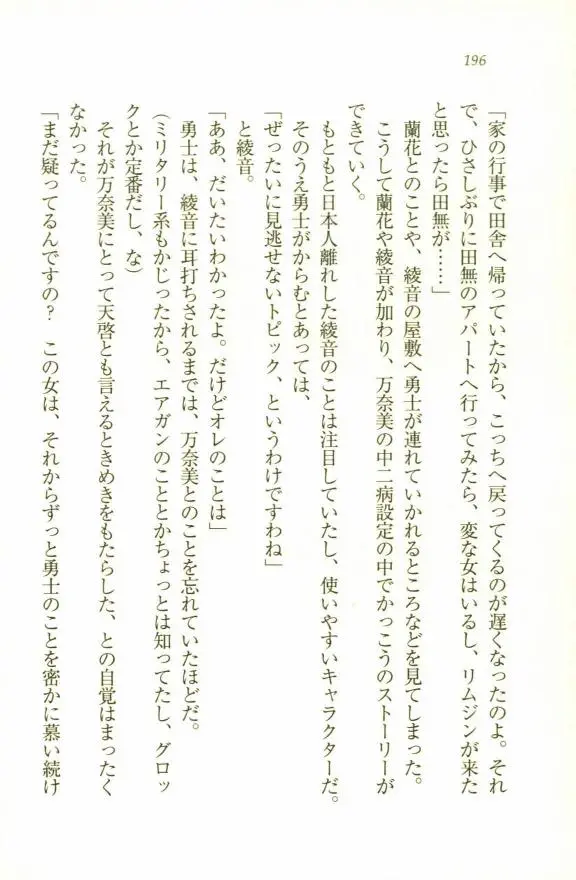 196
「家の行事で田舎へ帰っていたから、こっちへ戻ってくるのが遅くなったのよ。それ
で、ひさしぶりに田無のアパートへ行ってみたら、変な女はいるし、リムジンが来た
と思ったら田無が……」
蘭花とのことや、綾音の屋敷へ勇士が連れていかれるところなどを見てしまった。
こうして蘭花や綾音が加わり、万奈美の中二病設定の中でかっこうのストーリーが
できていく。
もともと日本人離れした綾音のことは注目していたし、使いやすいキャラクターだ。
そのうえ勇士がからむとあっては、
「ぜったいに見逃せないトピック、というわけですわね」
と綾音。
「ああ、だいたいわかったよ。だけどオレのことは」
勇士は、綾音に耳打ちされるまでは、万奈美とのことを忘れていたほどだ。
(ミリタリー系もかじったから、エアガンのこととかちょっとは知ってたし、グロッ
クとか定番だし、な)
それが万奈美にとって天啓とも言えるときめきをもたらした、との自覚はまったく
なかった。
「まだ疑ってるんですの? この女は、それからずっと勇士のことを密かに慕い続け